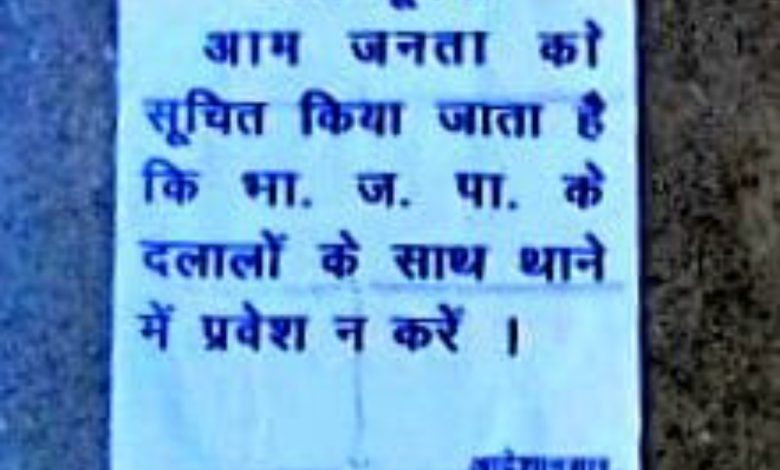 आम जनता को
सूचित किया जाता है
कि भा. ज. पा. के
दलालों के साथ थाने
में प्रवेश न करें ।